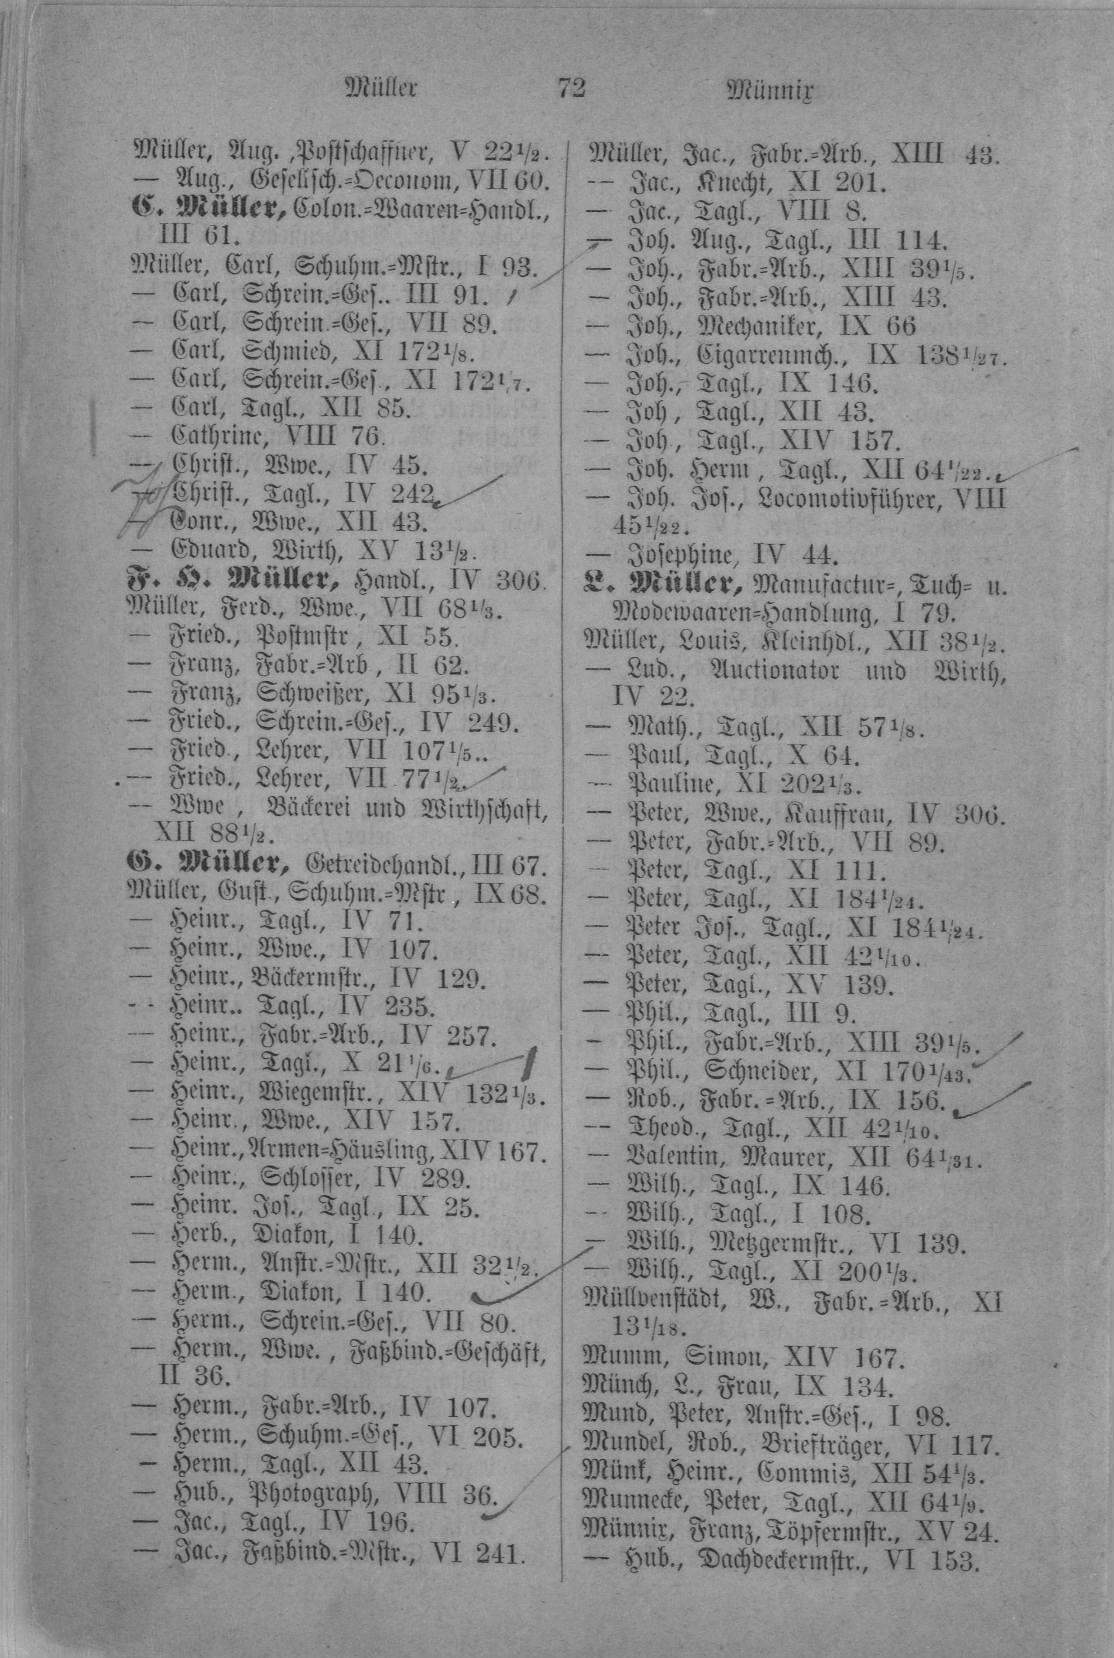 Müller 72 Münnix
Müller, Aug. ,Postschaffner, V 22 1/2.
— Aug., Gesellsch.=Oeconom, VII 60.
C. Müller, Colon.=Waaren=Handl.,
III 61.
Müller, Carl, Schuhm.=Mstr., I 93.
— Carl, Schrein.=Ges.. III 91.
— Carl, Schrein.=Ges., VII 89.
— Carl, Schmied, XI 172 1/8.
— Carl, Schrein.=Ges., XI 172 1/7.
— Carl, Tagl., XII 85.
— Cathrine, VIII 76.
— Christ., Wwe., IV 45.
— Christ., Tagl., IV 242.
— Conr., Wwe., XII 43.
— Eduard, Wirth, XV 13 1/2.
F. H. Müller, Handl., IV 306.
Müller, Ferd., Wwe., VII 68 1/3.
— Fried., Postmstr, XI 55.
— Franz, Fabr.=Arb, II 62.
— Franz, Schweißer, XI 95 1/3.
— Fried., Schrein.=Ges., IV 249.
— Fried., Lehrer, VII 107 1/5..
— Fried., Lehrer, VII 77 1/2.
— Wwe, Bäckerei und Wirthschaft,
XII 88 1/2.
G. Müller, Getreidehandl., III 67.
Müller, Gust., Schuhm.=Mstr, IX 68.
— Heinr., Tagl., IV 71.
— Heinr., Wwe., IV 107.
— Heinr., Bäckermstr., IV 129.
— Heinr.. Tagl., IV 235.
— Heinr., Fabr.=Arb., IV 257.
— Heinr., Tagl., X 21 1/6.
— Heinr., Wiegemstr., XIV 132 1/3.
— Heinr., Wwe., XIV 157.
— Heinr., Armen=Häusling, XIV 167.
— Heinr., Schlosser, IV 289.
— Heinr. Jos., Tagl., IX 25.
— Herb., Diakon, I 140.
— Herm., Anstr.=Mstr., XII 32 1/2.
— Herm., Diakon, I 140.
— Herm., Schrein.=Ges., VII 80.
— Herm., Wwe., Faßbind.=Geschäft,
II 36.
— Herm., Fabr.=Arb., IV 107.
— Herm., Schuhm.=Ges., VI 205.
— Herm., Tagl., XII 43.
— Hub., Photograph, VIII 36.
— Jac., Tagl., IV 196.
— Jac., Faßbind.=Mstr., VI 241.
Müller, Jac., Fabr.=Arb., XIII 43.
— Jac., Knecht, XI 201.
— Jac., Tagl., VIII 8.
— Joh. Aug., Tagl., III 114.
— Joh., Fabr.=Arb., XIII 39 1/5.
— Joh., Fabr.=Arb., XIII 43.
— Joh., Mechaniker, IX 66
— Joh., Cigarrenmch., IX 138 1/27.
— Joh., Tagl., IX 146.
— Joh, Tagl., XII 43.
— Joh., Tagl., XIV 157.
— Joh. Herm, Tagl., XII 64 1/22.
— Joh. Jos., Locomotivführer, VIII
45 1/22.
— Josephine, IV 44.
L. Müller, Manufactur=, Tuch= u.
Modewaaren=Handlung, I 79.
Müller, Louis, Kleinhdl., XII 38 1/2.
— Lud., Auctionator und Wirth,
IV 22.
— Math., Tagl., XII 57 1/8.
— Paul, Tagl., X 64.
— Pauline, XI 202 1/3.
— Peter, Wwe., Kauffrau, IV 306.
— Peter, Fabr.=Arb., VII 89.
— Peter, Tagl., XI 111.
— Peter, Tagl., XI 184 1/24.
— Peter Jos., Tagl., XI 184 1/24.
— Peter, Tagl., XII 42 1/10.
— Peter, Tagl., XV 139.
— Phil., Tagl., III 9.
— Phil., Fabr.=Arb., XIII 39 1/5.
— Phil., Schneider, XI 170 1/43.
— Rob., Fabr.=Arb., IX 156.
— Theod., Tagl., XII 42 1/10.
— Valentin, Maurer, XII 64 1/31.
— Wilh., Tagl., IX 146.
— Wilh., Tagl., I 108.
— Wilh., Metzgermstr., VI 139.
— Wilh., Tagl., XI 200 1/3.
Müllvenstädt, W., Fabr.=Arb., XI
13 1/18.
Mumm, Simon, XIV 167.
Münch, L., Frau, IX 134.
Mund, Peter, Anstr.=Ges., I 98.
Mundel, Rob., Briefträger, VI 117.
Münk, Heinr., Commis, XII 54 1/3.
Munnecke, Peter, Tagl., XII 64 1/9.
Münnix, Franz, Töpfermstr., XV 24.
— Hub., Dachdeckermstr., VI 153.